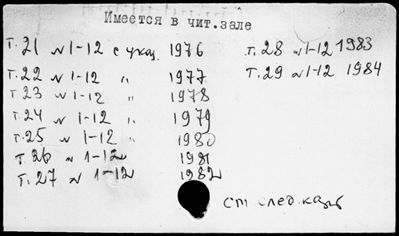 Имеется в чит.зале
т.21 № 1-12 с указ. 1976
т.22 № 1-12 " 1977
т.23 № 1-12 " 1978
т.24 № 1-12 " 1979
т.25 № 1-12 1980
т.26 № 1-12 1981
т.27 № 1-12 1982
т.28 № 1-12 1983
т.29 № 1-12 1984
см след.